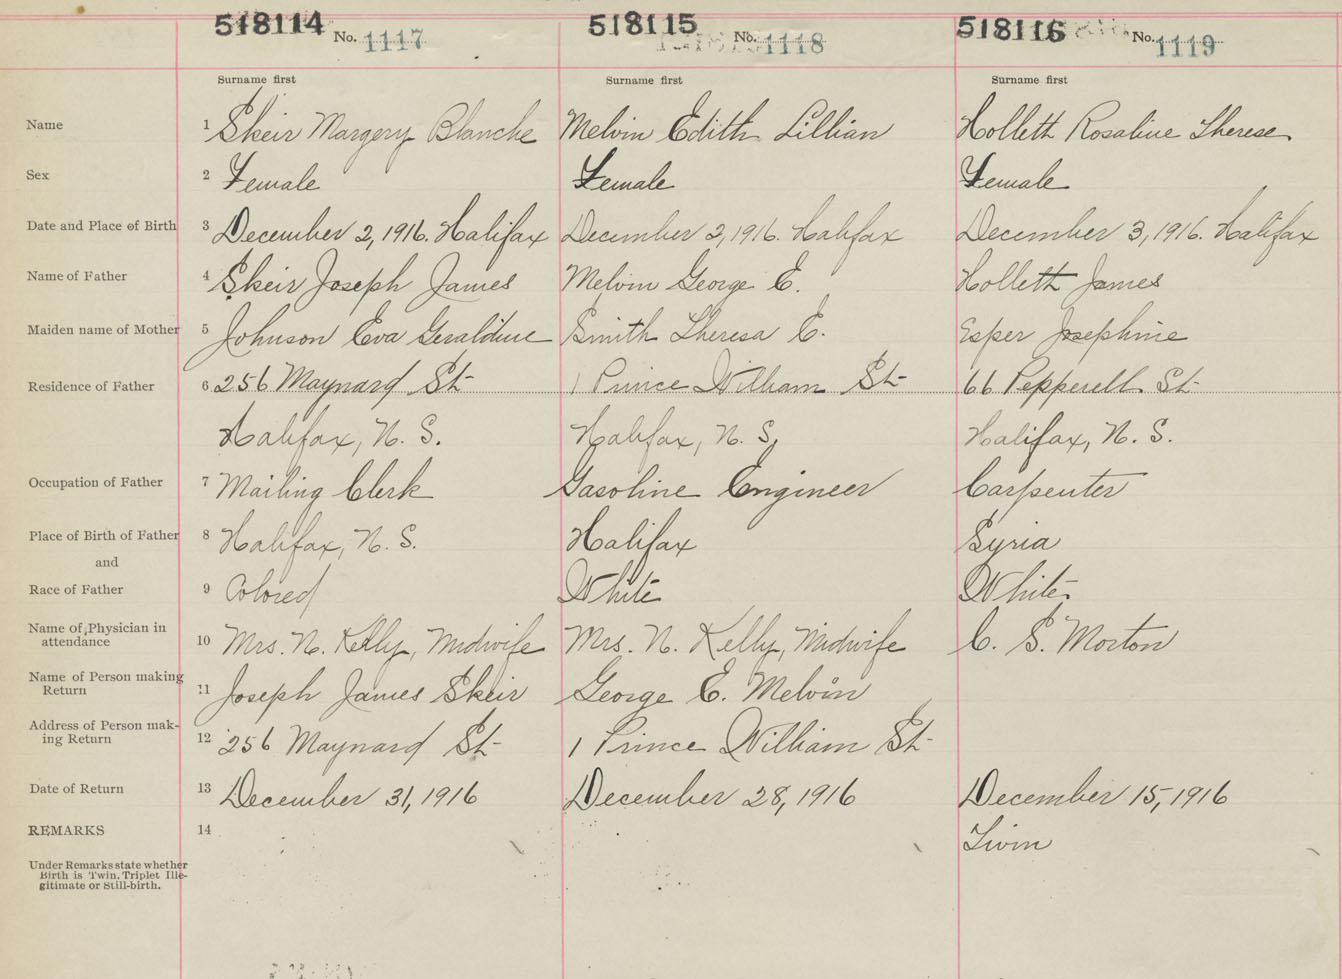 518114 No. 1117 518115 No. 1118 518116 No. 1119
Surname first Surname first Surname first
Name 1 Skeir Margery Blanche Melvin Edith Lillian Holleth Rosaline Therese
Sex 2 Female Female Female
Date and Place of Birth 3 December 2, 1916. Halifax December 2, 1916. Halifax December 3, 1916. Halifax
Name of Father 4 Skeir Joseph James Melvin George E. Holleth James
Maiden name of Mother 5 Johnson Eva Geraldine Smith Theresa E. Esper Josephine
Residence of Father 6 256 Maynard St- 1 Prince William St- 66 Pepperell St-
Halifax, N. S. Halifax, N. S, Halifax, N. S.
Occupation of Father 7 Mailing Clerk Gasoline Engineer Carpenter
Place of Birth of Father 8 Halifax, N. S. Halifax Syria
and
Race of Father 9 Colored White White
Name of Physician in
attendance 10 Mrs. N. Kelly, Midwife Mrs. N. Kelly, Midwife C. S. Morton
Name of Person making
Return 11 Joseph James Skeir George E. Melvin
Address of Person mak-
ing Return 12 256 Maynard St- 1 Prince William St-
Date of Return 13 December 31, 1916 December 28, 1916 December 15, 1916
REMARKS 14
Under Remarks state whether
Birth is Twin, Triplet Ille-
gitimate or Still-birth.